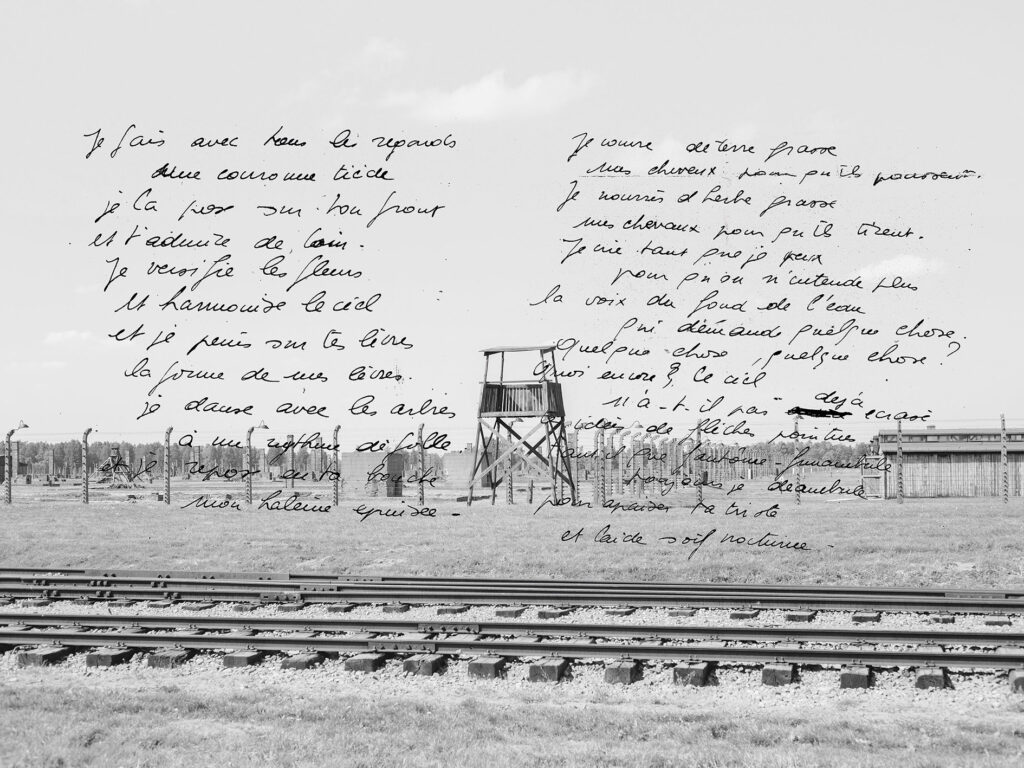 Je fais avec tous les regards
une couronne tiède
je la pose sur ton front
et t'admire de loin.
Je versifie les fleurs
et harmonise le ciel
et je peins sur tes lèvres
la forme de mes lèvres.
je danse avec les arbres
à un rythme de folle
et je repose en ta bouche
mon haleine épuisée -
Je couvre de terre grasse
mes cheveux pour qu'ils poussent.
Je nourris d'herbe grasse
mes chevaux pour qu'ils tirent.
Je crie tant que je peux
pour qu'on n'entende plus
la voix du fond de l'eau
qui demande quelque chose.
Quelque chose, quelque chose?
Quoi encore? Ce ciel
n'a-t-il pas déjà écrasé
de flèches pointues
que fantôme-funambule
toujours je déambule
pour apaiser ta triste
et laide soif nocturne -